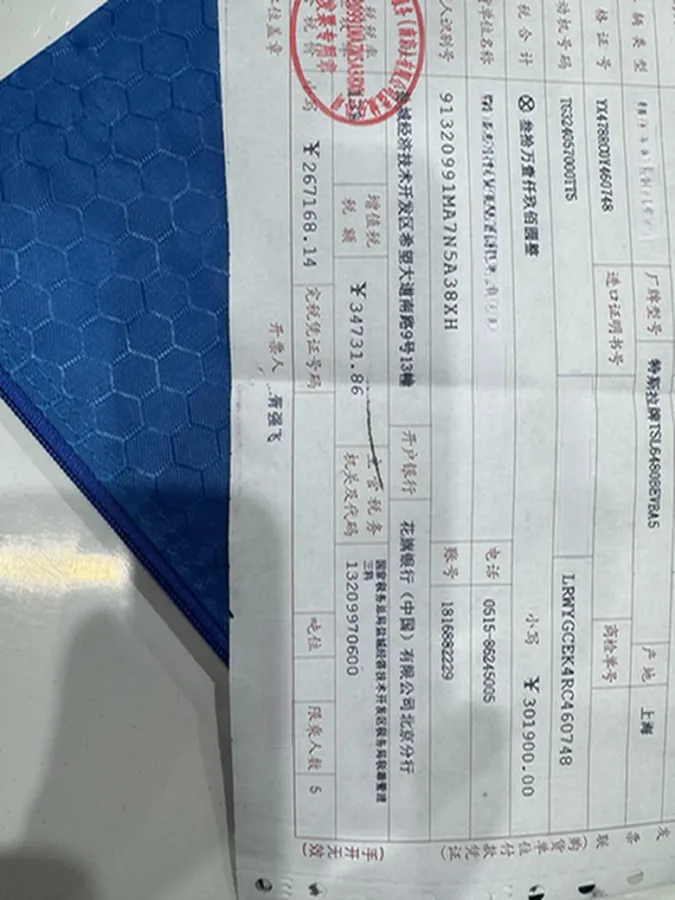 辆类型 厂牌型号 特斯拉牌TSL6480BEVBA5 产地 上海
格证号 YX4788C0Y460748 进口证明书号 商检单号
动机号码 TG3240570001TS LRWYGCEK4RC460748
税合计 ⊗ 叁拾万壹仟玖佰圆整 小写 ￥301900.00
货单位名称 电话 0515-86245005
人识别号 91320991MA7N5A38XH 账号 1816882229
盐城经济技术开发区希望大道南路9号13幢 开户银行 花旗银行（中国）有限公司北京分行
增值税税额 ￥34731.86 主管税务机关及代码 国家税务总局盐城经济技术开发区税务局
13209970600
小写 ￥267168.14 完税凭证号码 吨位 限乘人数 5
位盖章 开票人
发票专用章
发票联（购货单位付款凭证）（手开无效）